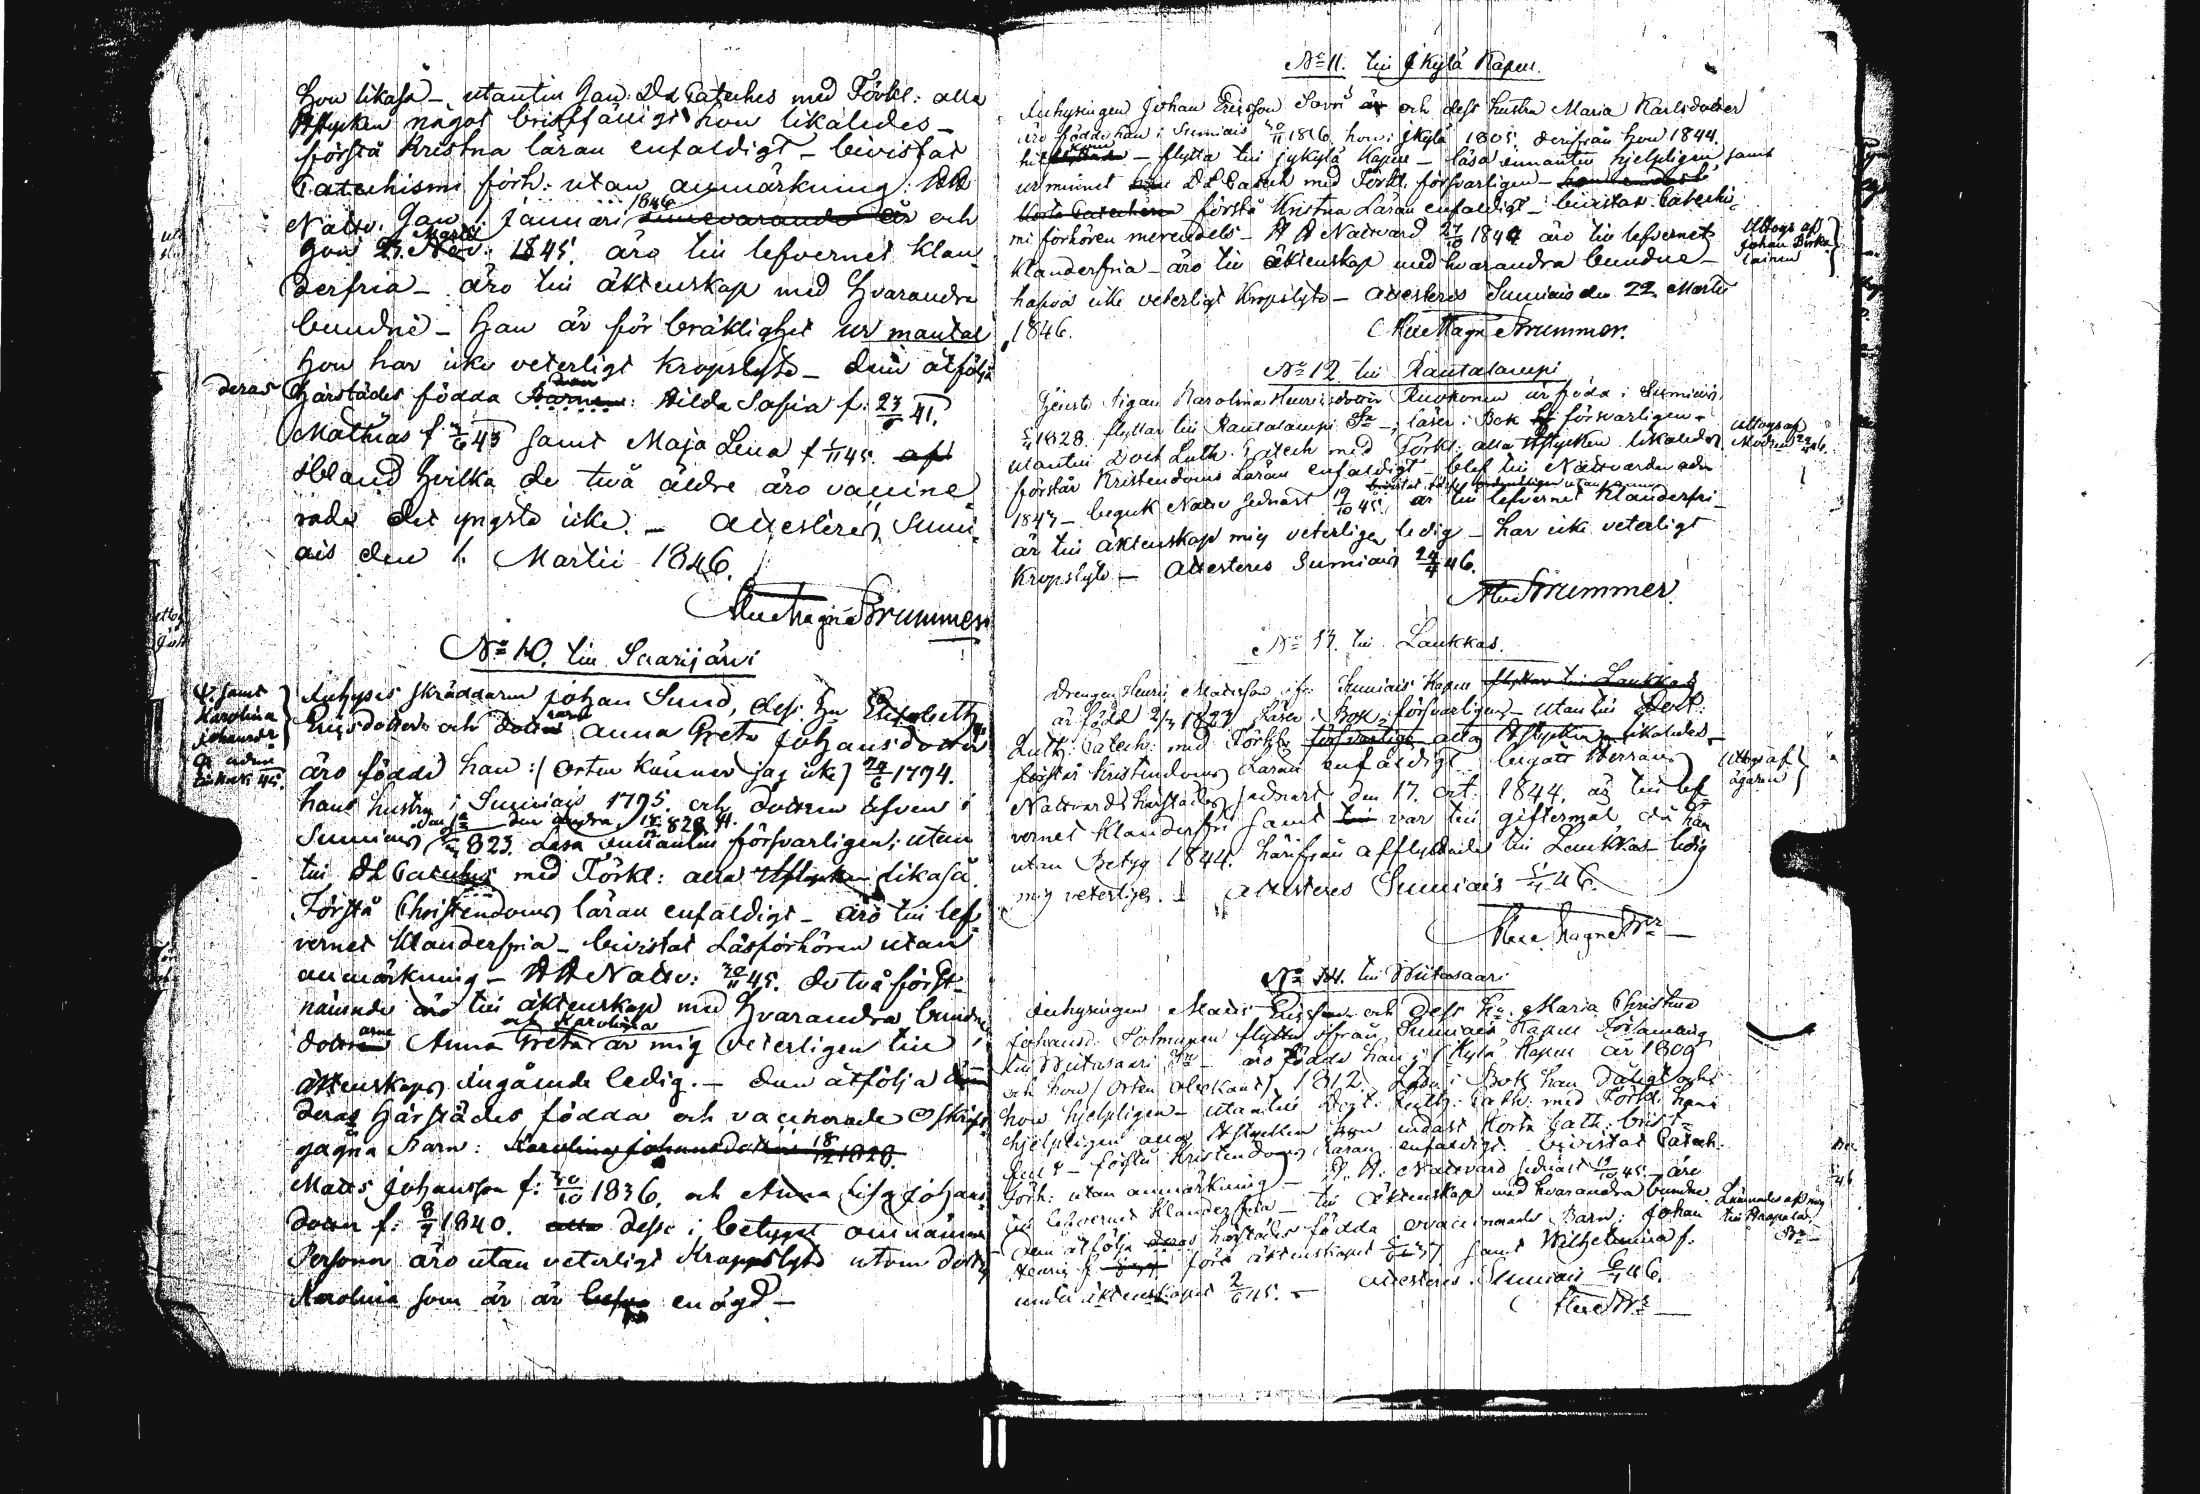 hon likaså – utantill han: D L Cateches med Förkl: alla
Astycken något bristfäligt hon likaledes –
förstå Kristna läran enfaldigt – bevistat
Catechismi förh: utan anmärkning: AA
Nattv. han 1. Januari 1846 innevarande år och
hon Martii Nov: 1845. äro till lefvernet klan-
derfria – äro till äktenskap med hvarandra
bundne – han är för bräklighet ur mantal
hon har icke veterligt kropslyte – dem åtfölja
deras härstädes födda Barnen: Hilda Sofia f: 23/ 41.
Mathias f 43 samt Maja Lena f 1/11 45. af
ibland hvilka de två äldre äro vaccine
rade det yngsta icke. – Attesteres, Sumi-
ais den 1. Martii 1846.
Alex Magn Brummer
No 10. till Saarijärvi
samt
Karolina
Johansdr
Inhyses skräddaren Johan Sund, dess hu Elisabeth
Ericsdotter och dotter Anna Greta Johansdotter
äro födde han :/ orten känner jag icke / 24/6 1794.
hans hustru i Sumiais 1795. och dottren äfven i
den 1a den andra 18/12 828
Sumiais 823. läsa innantill försvarligen; utan
till D L Cateches med Förkl: alla Astycken likaså.
Förstå Christendoms läran enfaldigt – äro till lef-
vernet klanderfria – bevistat Läsförhören utan
anmärkning – AA Nattv: 30/11 45. de två först-
nämnde äro till äktenskap med hvarandra bundne
och Karolina
dottren arne Anna Greta är mig veterligen till
äktenskaps ingående ledig. – dem åtfölja
deras härstädes födda och vaccinerade
gagna Barn: Karolina Johansdotter 18/12 1828.
Matts Johansson f: 30/10 1836. och Anna Lisa Johans-
dotter f: 8/7 1840. alla desse i betyget omnämnde
Personer äro utan veterligt Kroppslyte utom dottren
Karolina som är är enögd –
No 11. till Jkylä Kapell.
Inhysingen Johan Ericsson Savri är och dess hustru Maria Karlsdotter
äro födde han i Sumiais 30/11 1816 hon i Jkylä 1805. derifrån hon 1844.
hit kom – flytta till Jykylä Kapell – läsa innantill hjelpligen samt
ur minnet D L Catech med Förkl. försvarligen – hon endast
Korta Catechesen förstå Kristna Läran enfaldigt – bevistat Catechis-
mi förhören merendels – A A Nattvard 27/10 1844 äro till lefvernet
Uttogs af
Johan Birka
lainen
klanderfria – äro till äktenskap med hvarandra bundne –
hafva icke veterligt Kropslyte – Attesteres Sumiais den 22 Martii
1846.
Alex Magn Brummer.
No 12 till Rautalampi
Tjenste Pigan Karolina Henricsdotter Ruokonen är född i Sumiais
1828. flyttar till Rautalampi Sn –, läser i Bok försvarligen –
Uttogs af
Modren
utantill Doct Luth. Catech med Förkl. alla Astycken likaledes
förstår Kristendoms Läran enfaldigt – blef till Nattvarden adm
1843 – begick Nattv sednast 19/10 45. är till lefvernet klanderfri –
är till äktenskap mig veterligen ledig – har icke veterligt
Kropslyte – Attesteres Sumiais 24/4 46.
Alex Brummer.
No 13. till Laukkas.
Drengen Henric Matsson ifr. Sumiais Kapell flyttar till Laukkas
är född 2/7 1823 Läser i Bok försvarligen – utantill Doct.
Luth: Catech: med Förkl: försvarligt alla Astycken likaledes –
förstår Kristendoms Läran enfaldigt – begått Herrans
Uttogs af
ägaren
Nattvard härstädes sednast den 17. oct. 1844. är till lef-
vernet klanderfri samt till var till giftermål då han
utan Betyg 1844. härifrån afflyttade till Laukkas ledig
mig veterligen. – Attesteres Sumiais 46.
Alex. Magn Br
No 14. till Wiitasaari
Inhysingen Matts Ericsson och Dess Hu. Maria Christina
Johansd. flytta ifrån Sumiais Kapell Församling
till Wiitasaari Sn – äro födde han i Jkylä Kapell år 1809
och hon / orten obekant / 1812. Läsa i Bok han dåligt och
hon hjelpligen – utantill Doct. Luth: Cath: med Förkl: han
hjelpligen alla Astycken hon endast Korta Cath: brist-
– förstå Kristendoms Läran enfaldigt. bevistat Catech.
förh: utan anmärkning – A. A. Nattvard sednast 19/10 45. – äro
till lefvernet klanderfria – till äktenskap med hvarandra bundne.
Lemnades af mig
dem åtfölja deras härstädes födda ovaccinerade Barn: Johan
Henric f. före äktenskapet 37 samt Wilhelmina f.
under äktenskapet 2/6 45. – Attesteres. Sumiais 46.
Alex Br